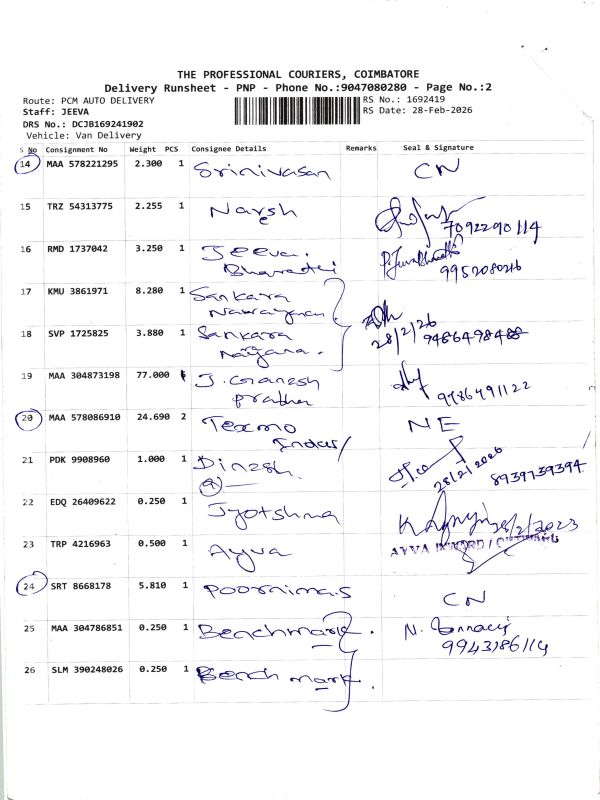 THE PROFESSIONAL COURIERS, COIMBATORE
Delivery Runsheet - PNP - Phone No.:9047080280 - Page No.:2
Route: PCM AUTO DELIVERY
RS No.: 1692419
Staff: JEEVA
RS Date: 28-Feb-2026
DRS No.: DCJB169241902
Vehicle: Van Delivery
S No Consignment No Weight PCS Consignee Details Remarks Seal & Signature
14 MAA 578221295 2.300 1 Srinivasan CN
15 TRZ 54313775 2.255 1 Naresh 7092290114
16 RMD 1737042 3.250 1 Jeeva Bharathi 9952080216
17 KMU 3861971 8.280 1 Sankara Narayanan
18 SVP 1725825 3.880 1 Sankara 28/2/26 9486498488
19 MAA 304873198 77.000 J. Ganesh 9786491122
20 MAA 578086910 24.690 2 Texmo Indus/ NE
21 PDK 9908960 1.000 1 Dinesh 28/2/2026 8939739394
22 EDQ 26409622 0.250 1 Jyotshna
23 TRP 4216963 0.500 1 Ayva AYVA
24 SRT 8668178 5.810 1 Poornima.S CN
25 MAA 304786851 0.250 1 Benchmark. N. 9943786114
26 SLM 390248026 0.250 1 Bench mark.